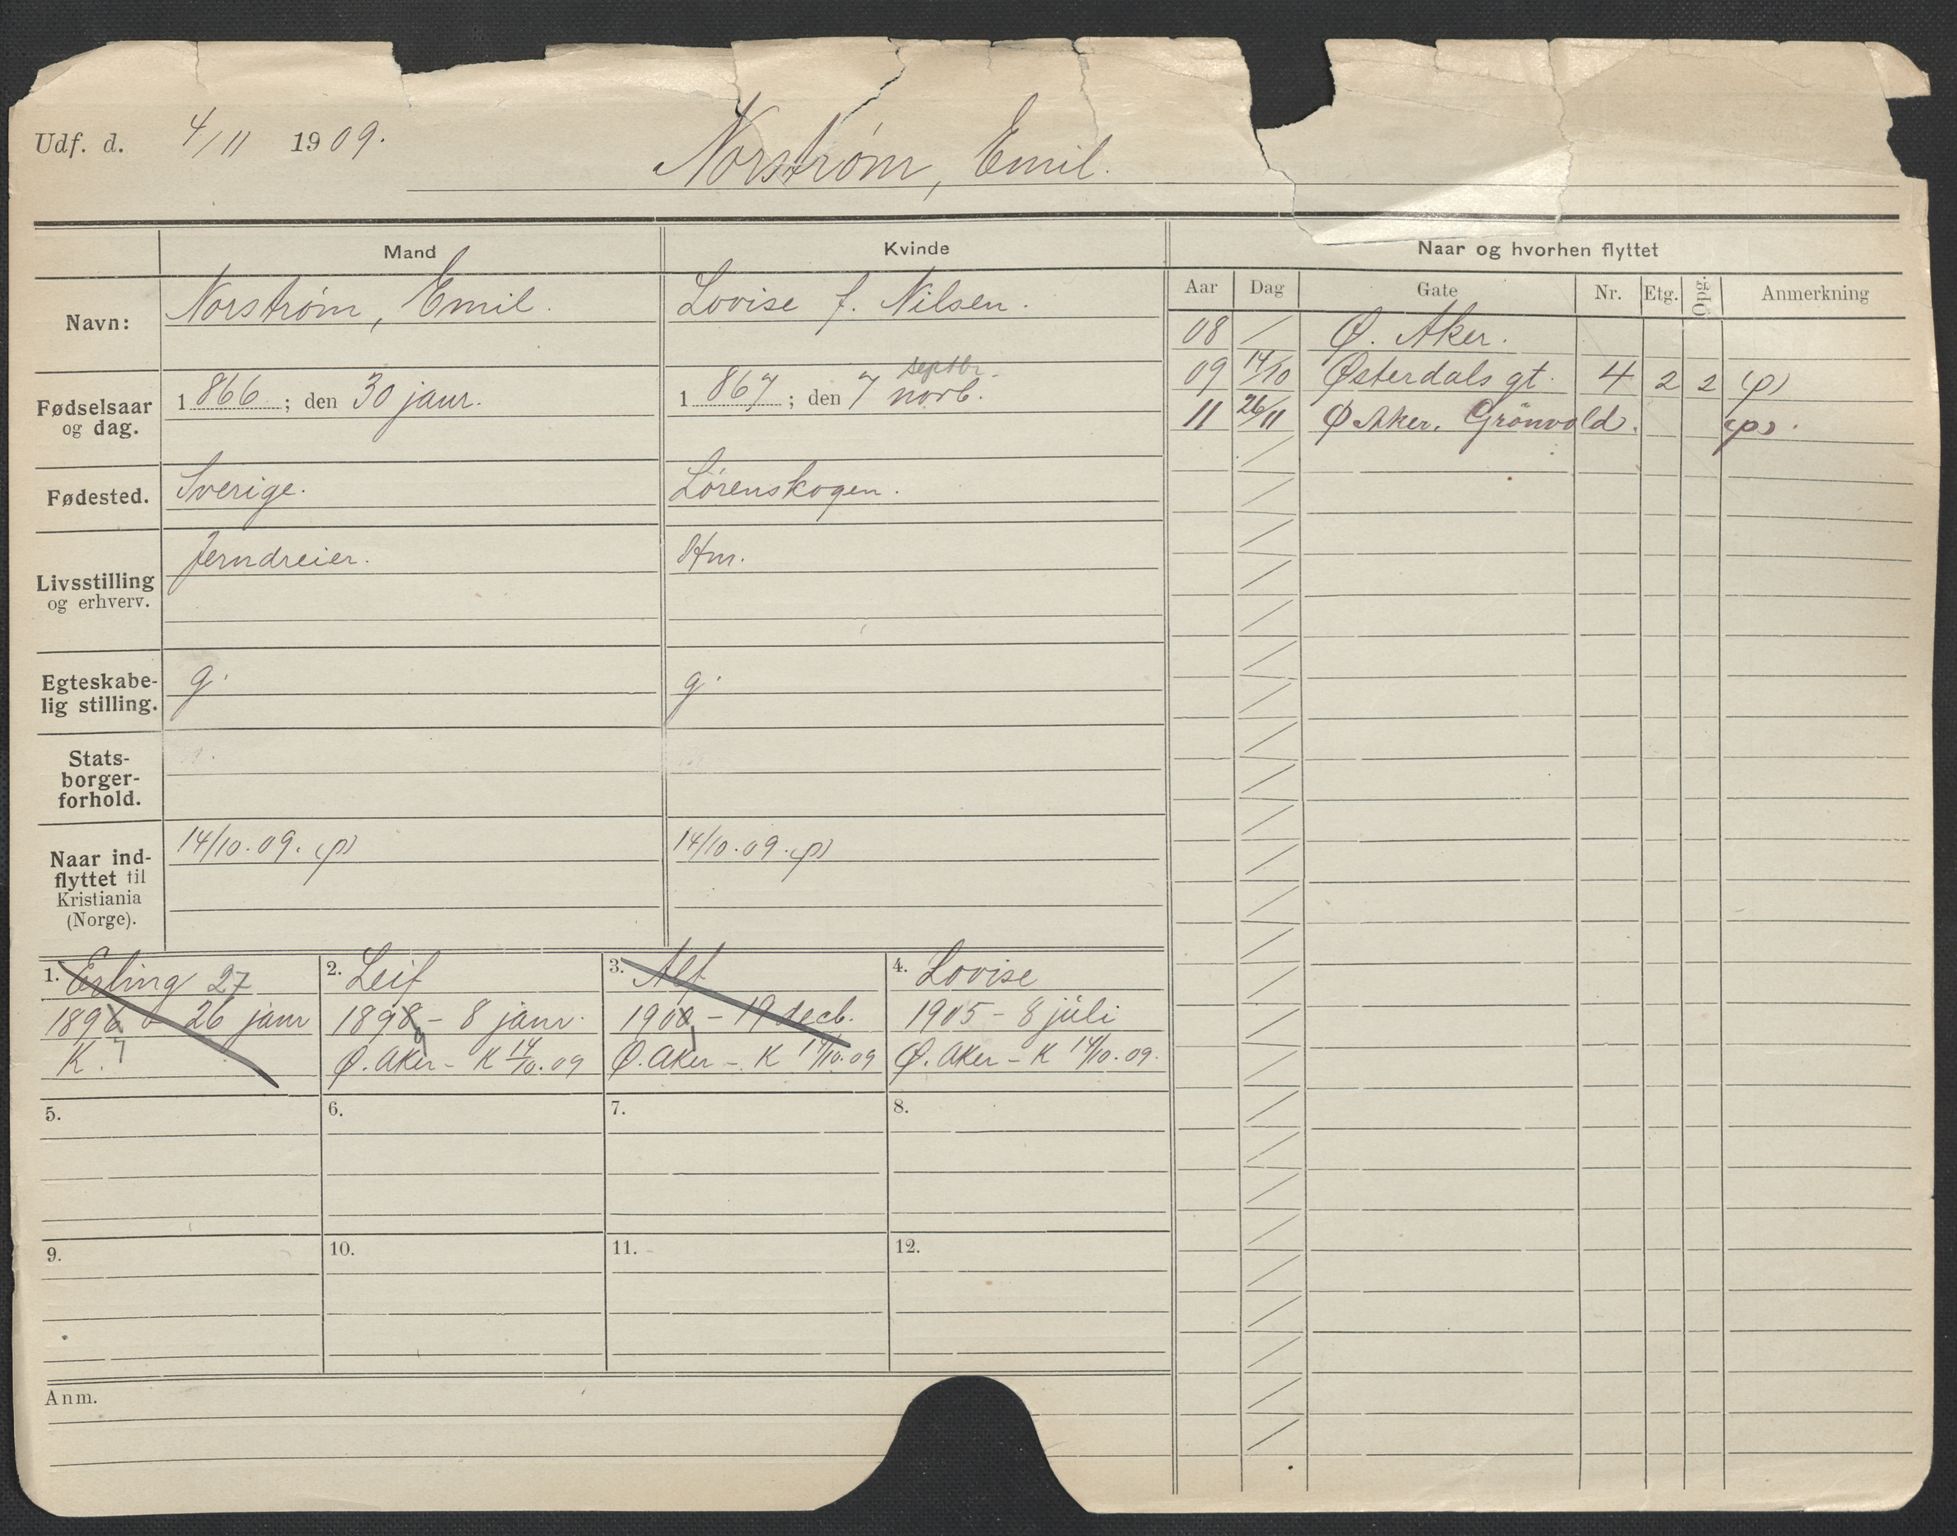 Udf. d. 4/11 1909.
Norstrøm, Emil.
Mand
Kvinde
Naar og hvorhen flyttet
Aar Dag Gate Nr. Etg. Opg. Anmerkning
Navn:
Norstrøm, Emil.
Lovise f. Nilsen.
Fødselsaar
og dag.
1866; den 30 jaur.
septbr.
1867; den 7 novb.
Fødested.
Sverige.
Lørenskogen.
Livsstilling
og erhverv.
Jerndreier.
Hm.
Egteskabe-
lig stilling.
g.
g.
Stats-
borger-
forhold.
Naar ind-
flyttet til
Kristiania
(Norge).
14/10.09. (p)
14/10.09. (p)
08 / Ø. Aker.
09 14/10 Østerdals gt. 4 2 2 (p)
11 26/11 Ø Aker. Grönvold. (p).
1. Erling 27
1896 - 26 janr
7
K.
2. Leif
1898 - 8 janr.
9
Ø. Aker - K 14/10.09
3. Alf
1900 - 19 decb.
1
Ø. Aker - K 14/10.09
4. Lovise
1905 - 8 juli
Ø. Aker - K 14/10.09.
5.
6.
7.
8.
9.
10.
11.
12.
Anm.